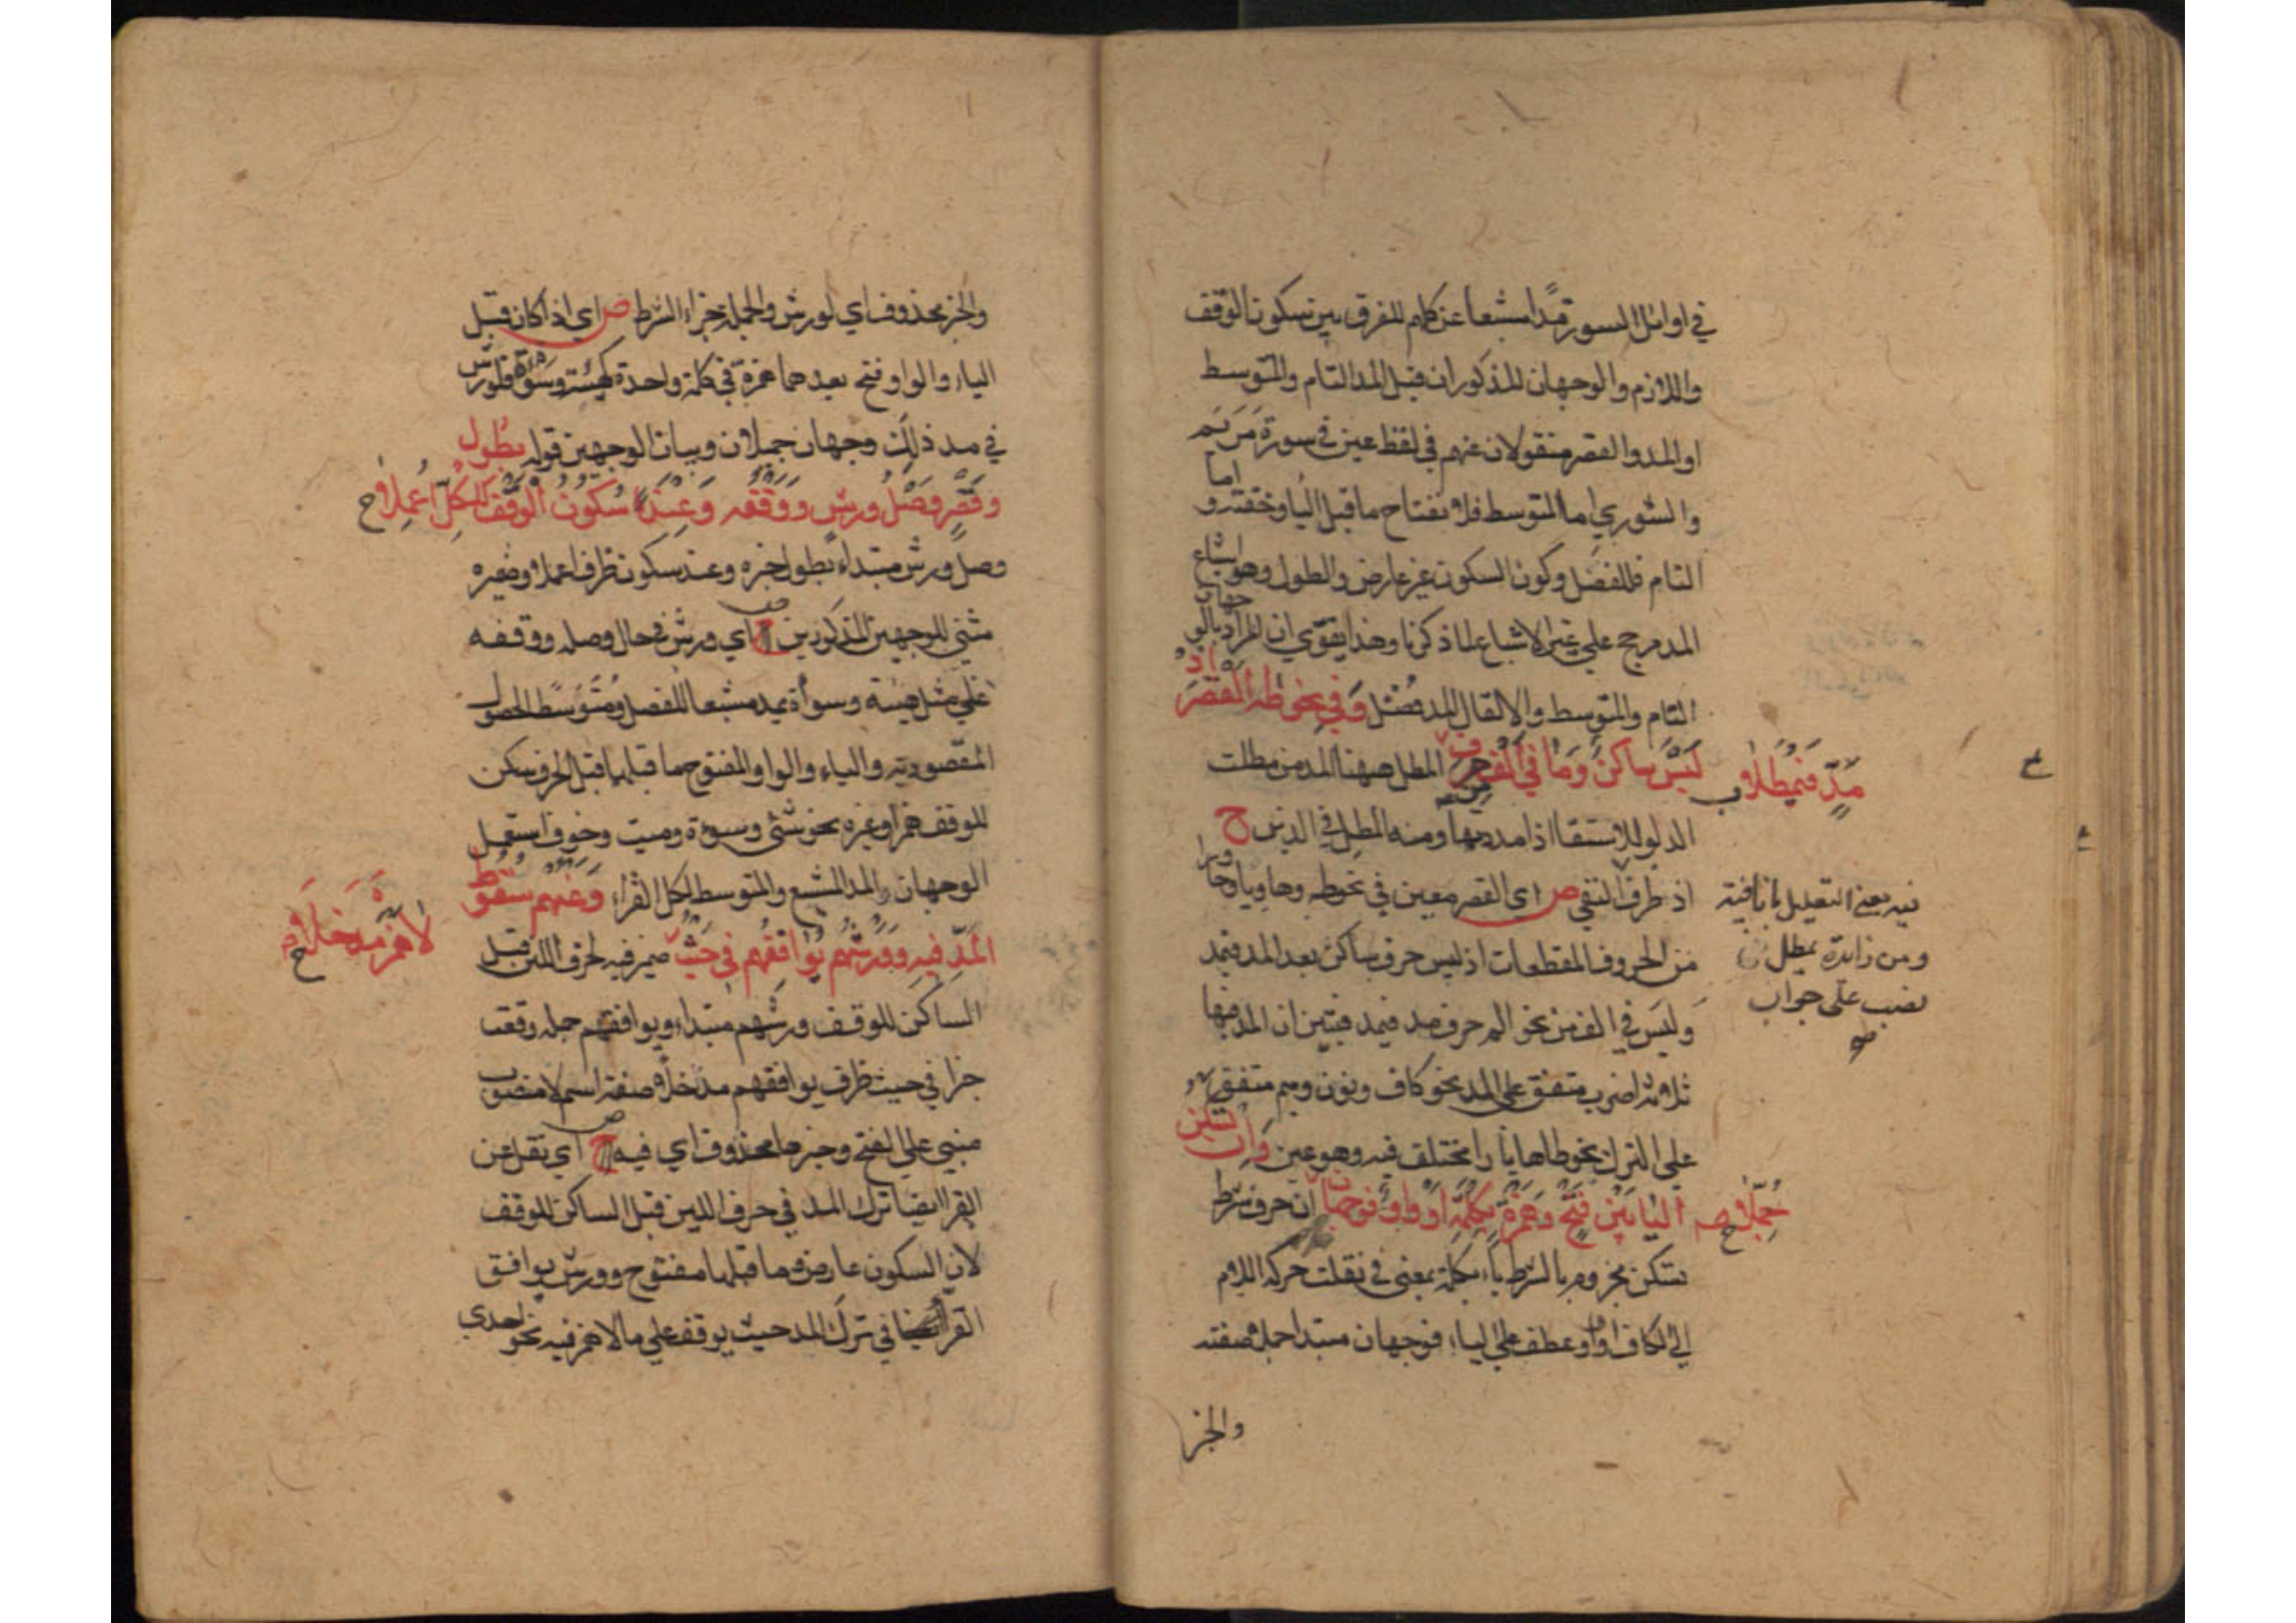 في اوائل السور مدا مشبعا عن كلهم للفرق بين سكون الوقف
واللازم والوجهان المذكوران قيل المد التام والتوسط
او المد والقصر منقولان عنهم في لفظ عين في سورة مريم
والشوري اما التوسط فلانفتاح ما قبل اليا وخفته و اما
التام فللفصل وكون السكون غير عارض والطول وهو اشباع
المد مرجح علي غير الاشباع لما ذكرنا وهذا يقوي ان المراد بالوجهان
التام والتوسط والا لقال المد فضل وفي نحو طه القصر اذ
ليس ساكن وما في الف من حرف مد فيمطلا ح المطل ههنا المد من مطلت
الدلو للاستقا اذا مددتها ومنه المطل في الدين ح
اذ ظرف النفي ص اي القصر معين في نحو طه وها ويا وحا ورا
فيه يعني التعليل ما نافية
من الحروف المقطعات اذ ليس حرف ساكن بعد المد فيمد
ومن زائدة يمطل
وليس في الف من نحو الم حرف مد فيمد فتبين ان المد فيها
نصب على جواب
ثلاثة اضرب متفق على المد نحو كاف ونون وميم ومتفق
على الترك نحو طا ها يا را مختلف فيه وهو عين وان تسكن
اليا بين فتح وهمزة بكلمة او واو فوجهان جملا ص ان حرف شرط
تسكن مجزوم بالشرط باء بكلمة بمعنى في نقلت حركة اللام
الي الكاف او واو عطف علي اليا، فوجهان مبتدا جملا صفته
والخبر
والخبر محذوف اي لورش والجملة جزاء الشرط ص اي اذا كان قبل
الياء والواو فتح بعدهما همزة في كلمة واحدة كهيئة وسوءة فلورش
في مد ذلك وجهان جميلان وبيان الوجهين قوله بطول
وقصر وصل ورش ووقفه وعند سكون الوقف للكل اعملا ح
وصل ورش مبتداء بطول خبره وعند سكون ظرف اعملا وضميره
مثني للوجهين المذكورين ح اي ورش في حال وصله ووقفه
علي مثل هيئة وسوأة يمد مشبعا للفصل ومتوسطا لحصول
المقصود به والياء والواو المفتوح ما قبلها قبل الحرف سكن
للوقف همزا وغيره نحو شئ وسوءة وميت وخوف استعمل
الوجهان والمد المشبع والتوسط لكل القراء وعنهم سقوط
المد فيه وورشهم يوافقهم في حيث لا همز مدخلا ح ضمير فيه لحرف اللين قبل
الساكن للوقف ورشهم مبتداء ويوافقهم جملة وقعت
خبرا في حيث ظرف يوافقهم مدخلا صفة اسم لا منصوب
مبني علي الفتح وخبرها محذوف اي فيه ح اي نقل عن
القرا ايضا ترك المد في حرف اللين قبل الساكن للوقف
لان السكون عارض وما قبلها مفتوح وورش يوافق
القرا ايضا في ترك المد حيث يوقف علي ما لا همز فيه نحو احدي